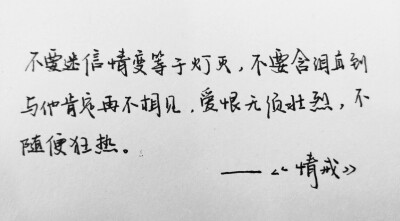 不要迷信情变等于灯灭，不要含泪直到
与他肯定再不相见，爱恨无须壮烈，不
随便狂热。
——《情戒》